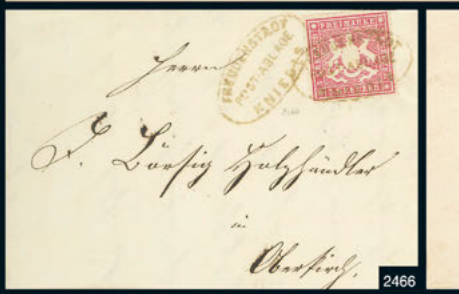 FREUDENSTADT
POSTABLAGE
KNIEBIS
FREIMARKE
Herrn
F. Börsig Holzhändler
in
Oberkirch.
2466